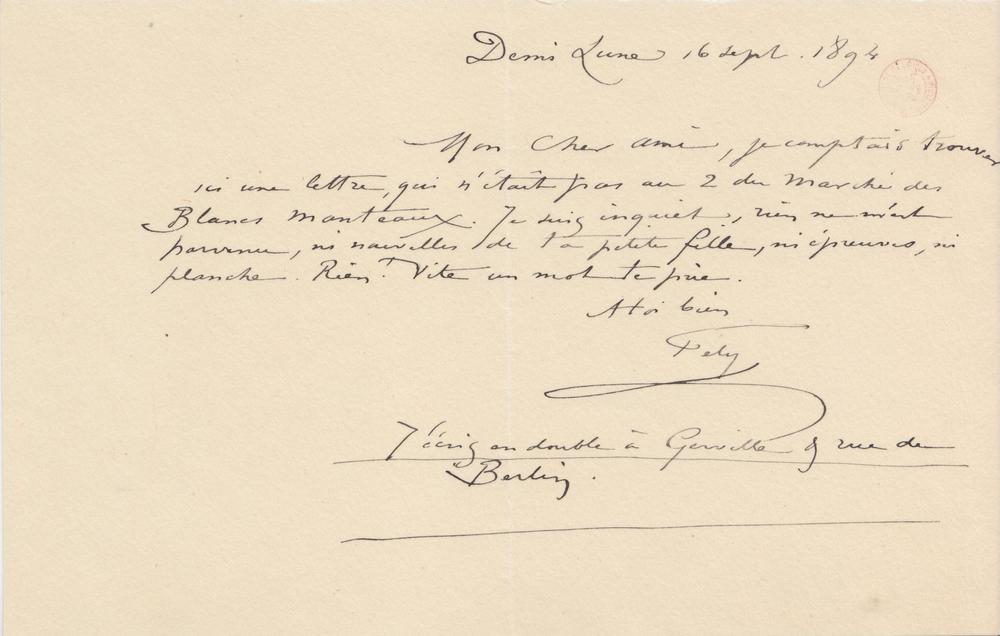 Demi Lune 16 sept. 1894
Mon Cher ami, je comptais trouver
ici une lettre, qui n'était pas au 2 du Marché des
Blancs Manteaux. Je suis inquiet, rien ne m'est
parvenu, ni nouvelles de ta petite fille, ni épreuves, ni
planche. Rien! Vite un mot te prie.
A toi bien
Fély
J'écris en double à Gerville rue de
Berlin.